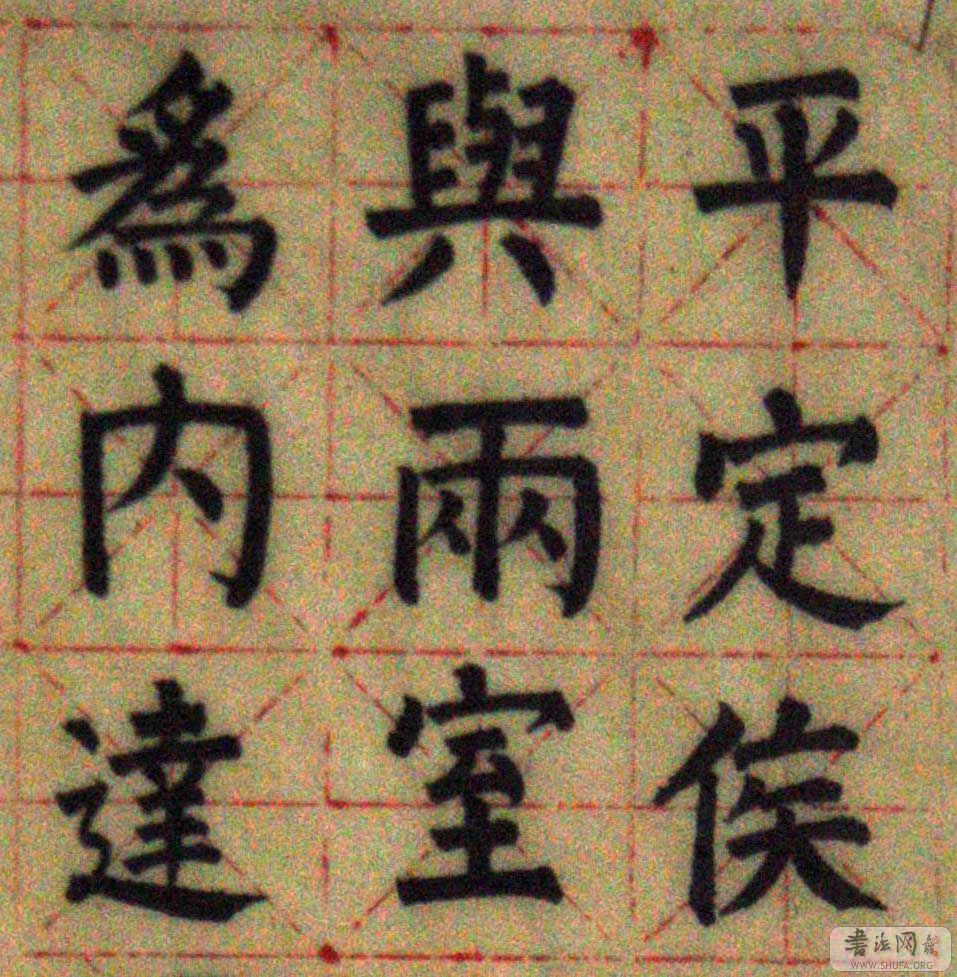 平定侯
與兩室
為內達
書法网
WWW.SHUFA.ORG